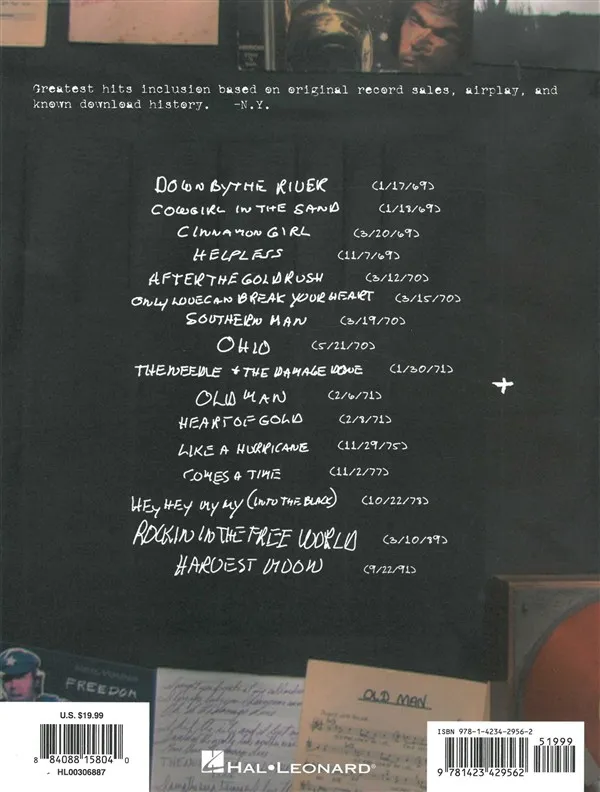 Greatest hits inclusion based on original record sales, airplay, and
known download history. -N.Y.
DOWN BY THE RIVER (1/17/69)
COWGIRL IN THE SAND (1/18/69)
CINNAMON GIRL (3/20/69)
HELPLESS (11/7/69)
AFTER THE GOLDRUSH (3/12/70)
ONLY LOVE CAN BREAK YOUR HEART (3/15/70)
SOUTHERN MAN (3/19/70)
OHIO (5/21/70)
THE NEEDLE + THE DAMAGE DONE (1/30/71)
OLD MAN (2/6/71)
HEART OF GOLD (2/8/71)
LIKE A HURRICANE (11/29/75)
COMES A TIME (11/2/77)
HEY HEY MY MY (INTO THE BLACK) (10/22/78)
ROCKIN IN THE FREE WORLD (3/10/89)
HARVEST MOON (9/22/91)
FREEDOM
OLD MAN
U.S. $19.99
8 84088 15804 0
HL00306887
HAL•LEONARD®
ISBN 978-1-4234-2956-2
51999
9 781423 429562